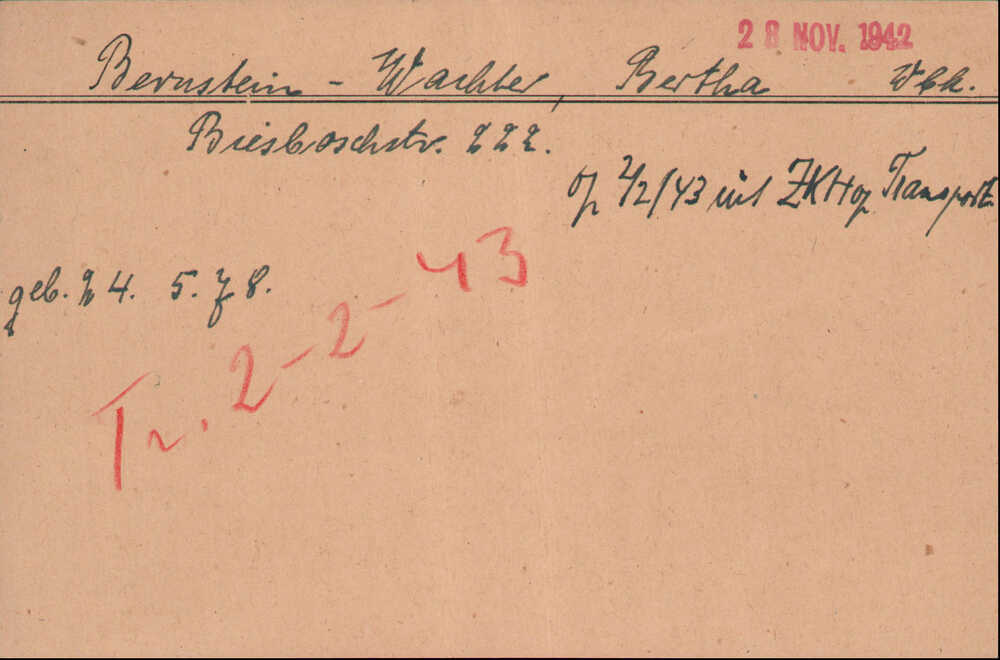 28 NOV. 1942
Bernstein - Wachter, Bertha Wbk.
Biesboschstr. 222.
op 2/2/43 uit ZKH op Transport.
geb. 24. 5. 78.
Tr. 2-2-43